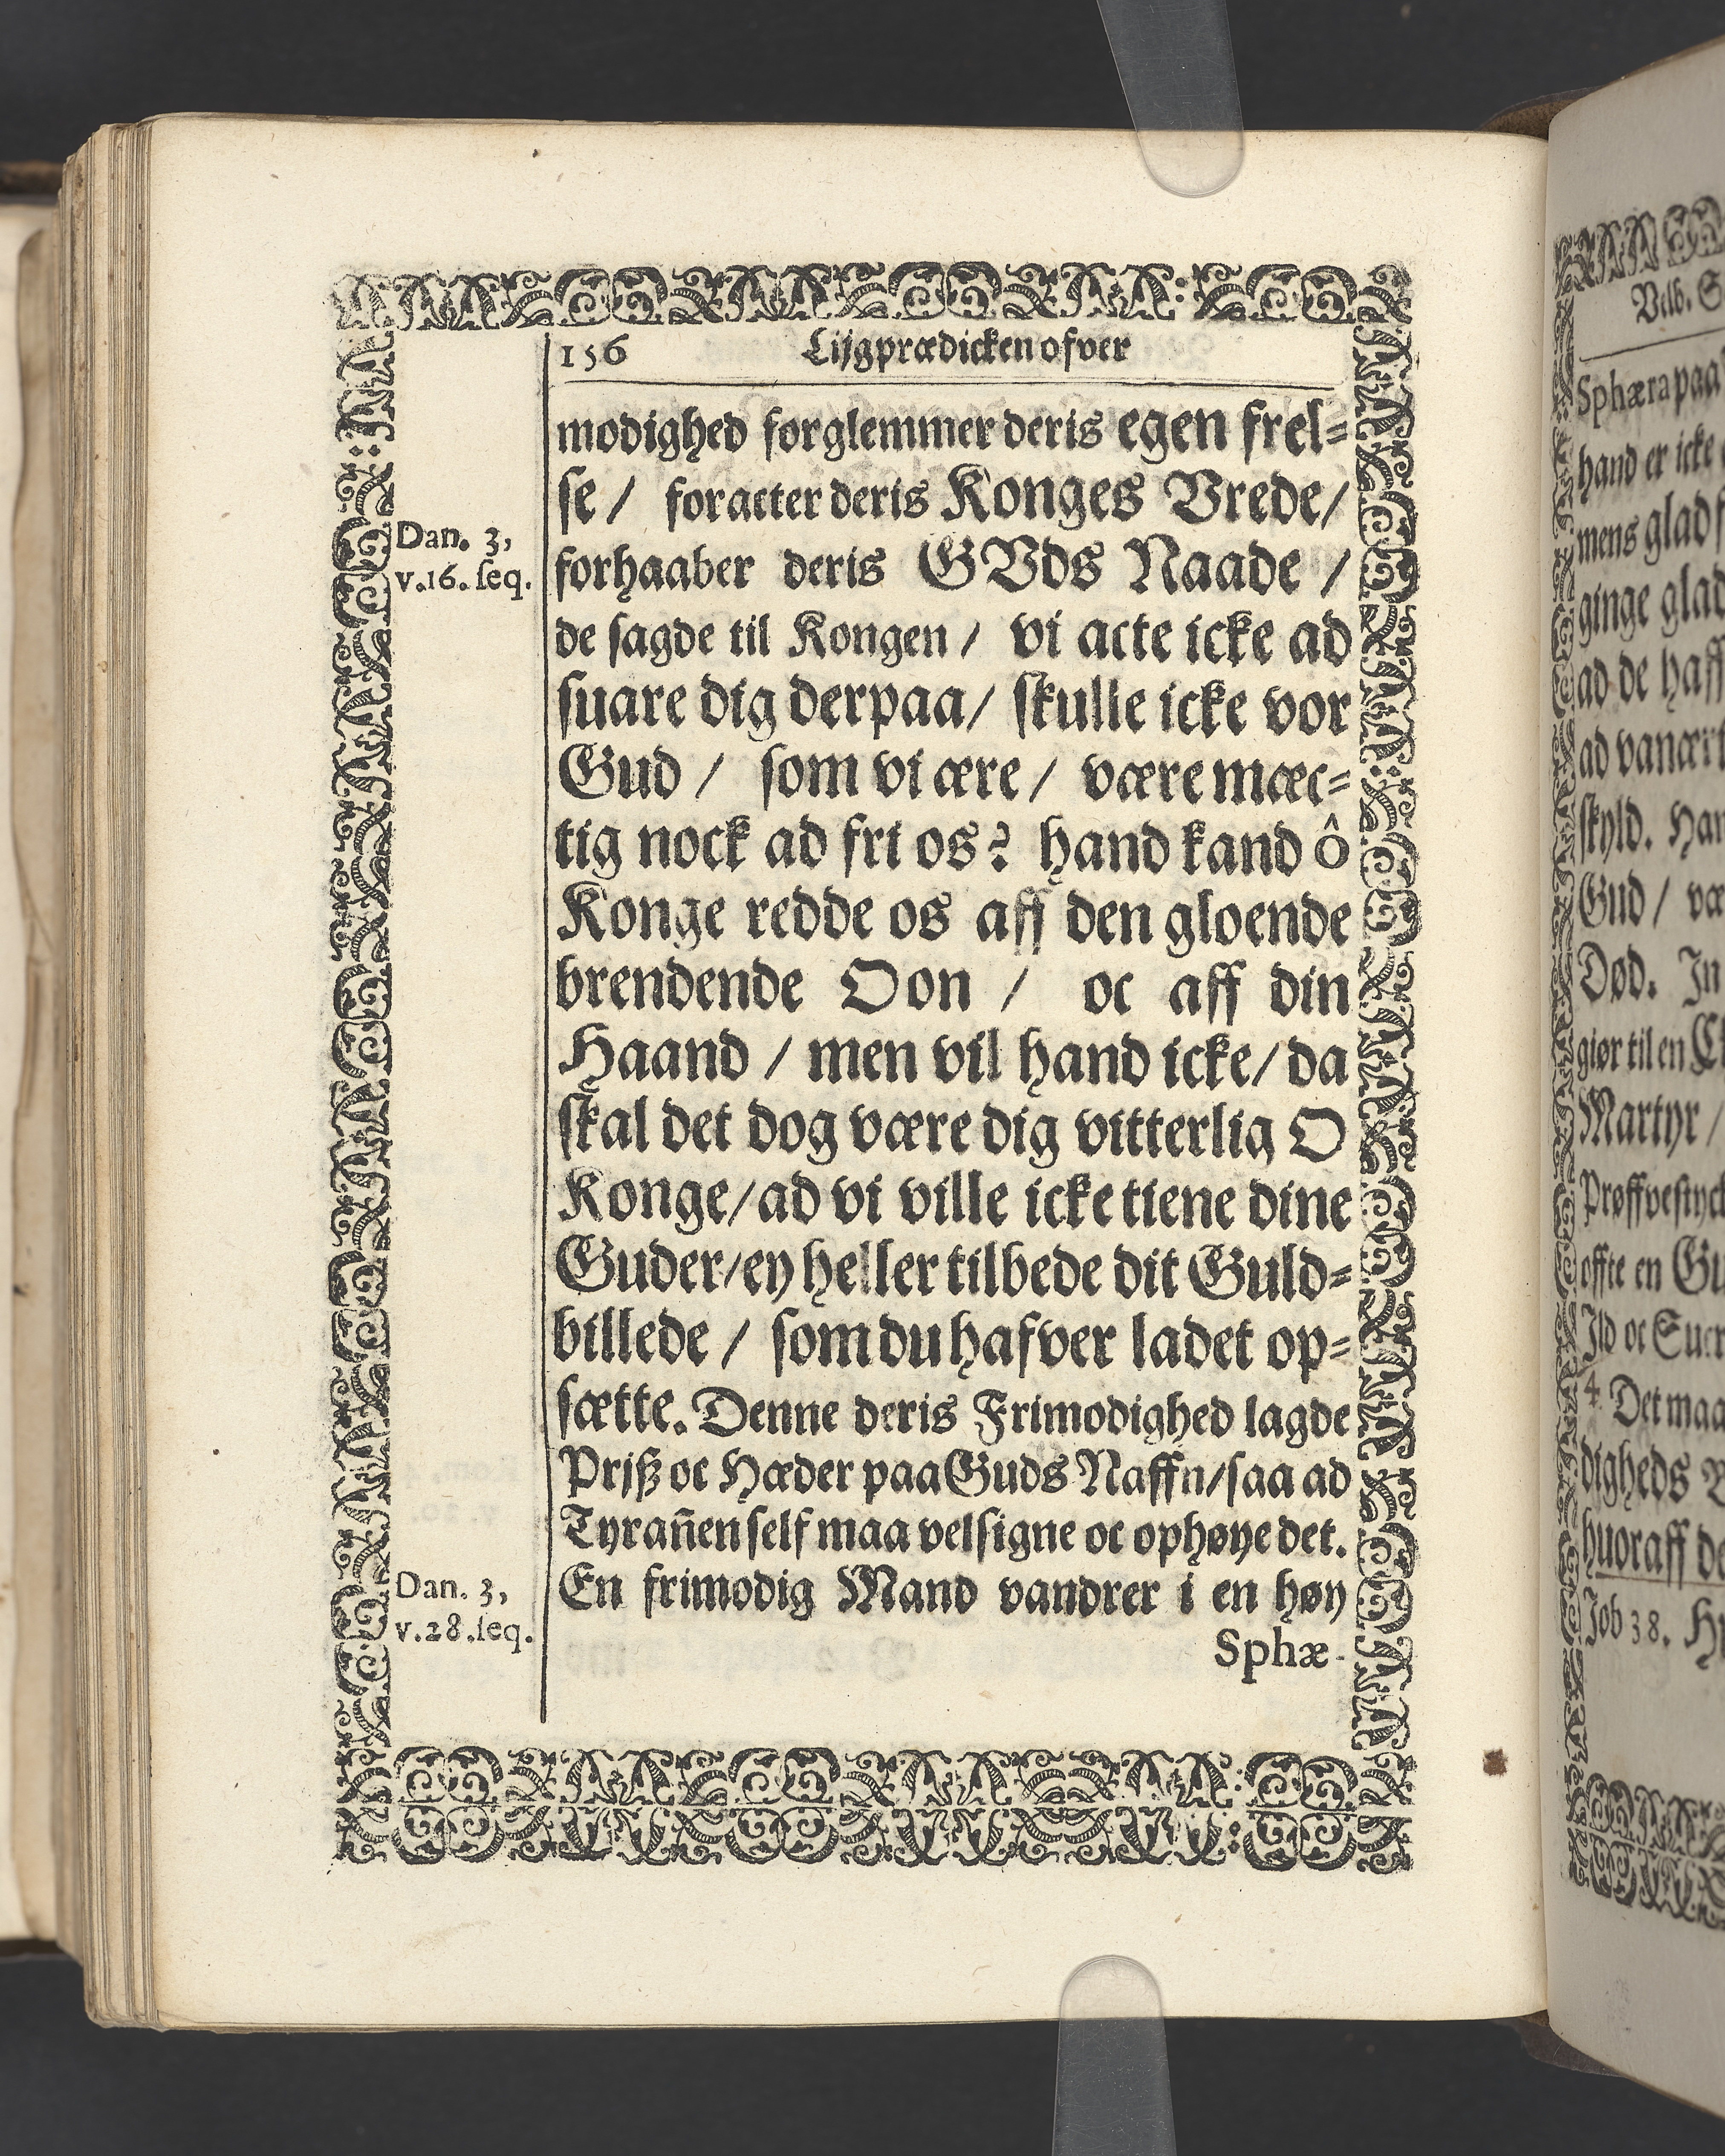 156 Lijgprædicken ofver
modighed forglemmer deris egen frel=
se / foracter deris Konges Vrede/
Dan. 3,
v.16. seq.
forhaaber deris GVds Naade /
de sagde til Kongen / vi acte icke ad
suare dig derpaa/ skulle icke vor
Gud / som vi ære / være mæc=
tig nock ad fri os? hand kand ô
Konge redde os aff den gloende
brendende Oon / oc aff din
Haand / men vil hand icke/ da
skal det dog være dig vitterlig O
Konge/ad vi ville icke tiene dine
Guder/ey heller tilbede dit Guld=
billede / som du hafver ladet op=
sætte. Denne deris Frimodighed lagde
Prjß oc Hæder paa Guds Naffn/saa ad
Tyrañen self maa velsigne oc ophøye det.
Dan. 3,
v.28.seq.
En frimodig Mand vandrer i en høy
Sphæ-
Velb.
Sphæra paa
hand er icke
mens glad
ginge glad
ad de haff
ad vanært
skyld. Han
Gud / væ
Død. In
giør til en
Martyr /
Prøffvestyck
offte en Gu
Ild oc Suer
4. Det maa
digheds
huoraff de
Job 38.